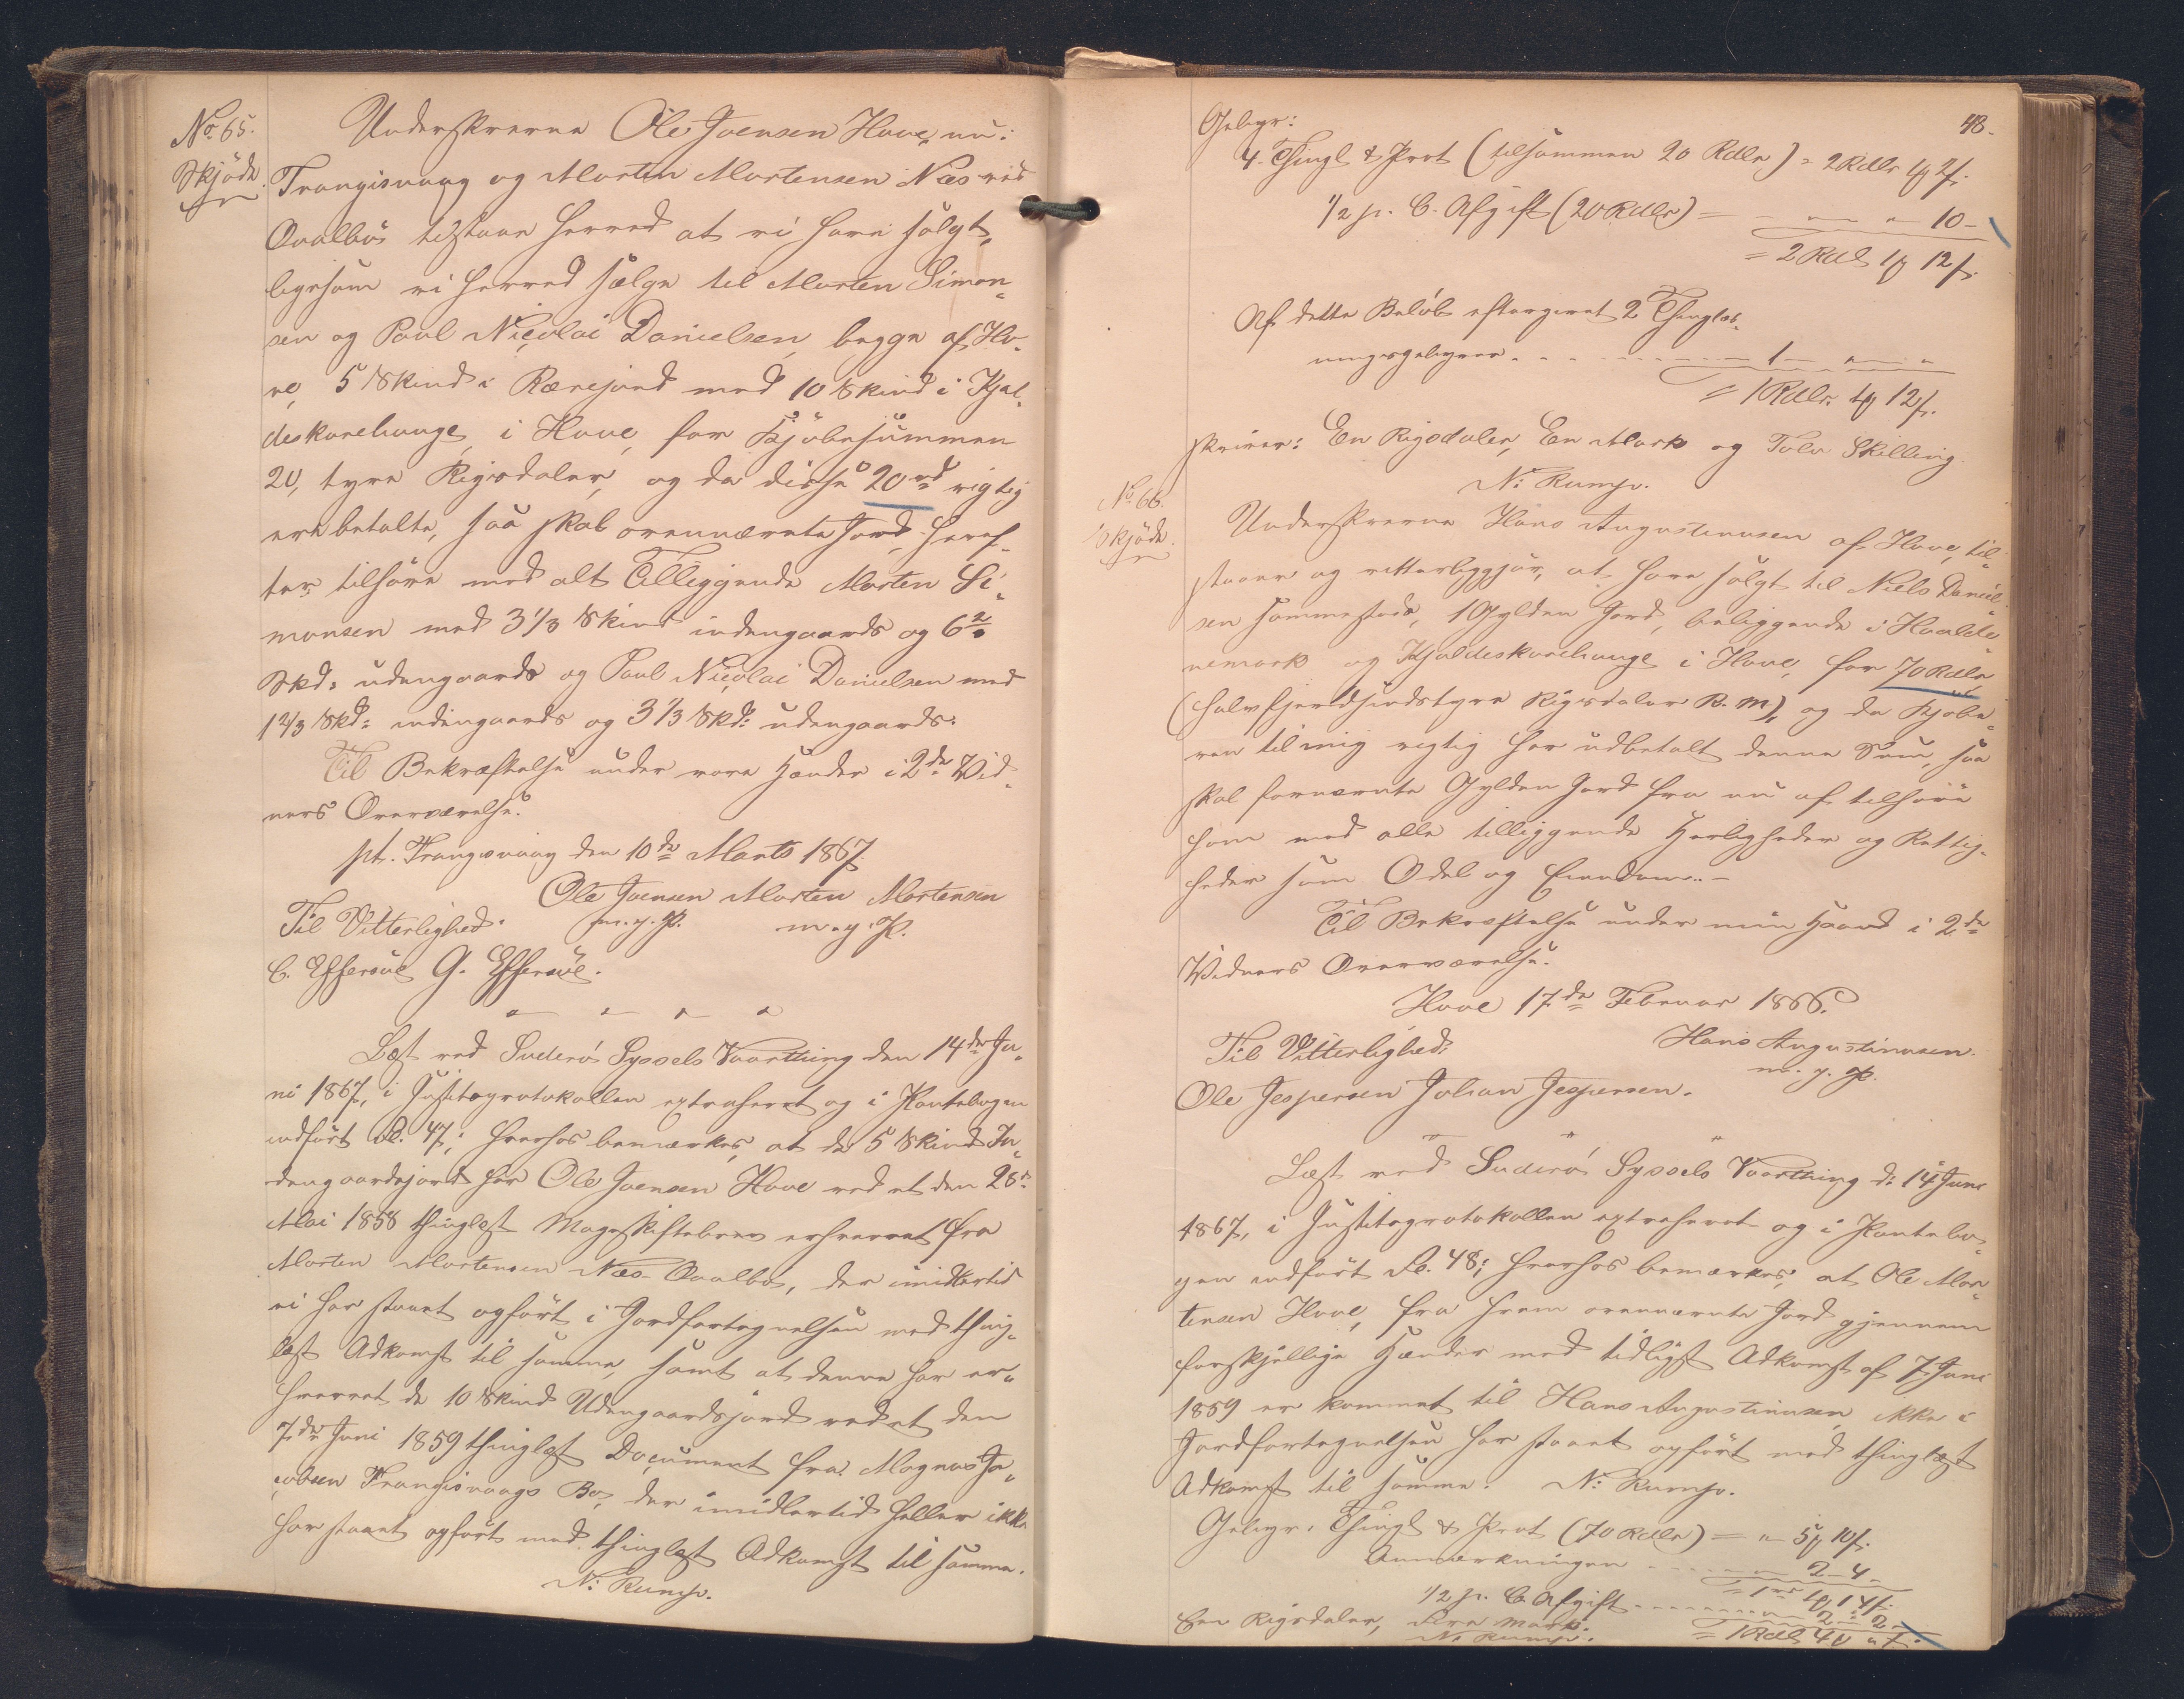 No 65.
Skjöde.
Underskrevne Ole Joensen Hove, nu:
Trangisvaag og Morten Mortensen Næs ved
Qvalbö tilstaae herved at vi have solgt,
ligesom vi herved sælge til Morten Simon-
sen og Poul Nicolai Danielsen, begge af Ho-
ve, 5 Skind i Rærejord med 10 Skind i Kjal-
deskorehauge, i Hove, for Kjöbesummen
20, tyve Rigsdaler, og da disse 20 rd rigtig
ere betalte, saa skal ovennævnte Jord heref-
ter tilhøre med alt Tilliggende Morten Si-
monsen med 3 1/3 Skind indengaards og 6 2/3
Skd: udengaards og Poul Nicolai Danielsen med
1 2/3 Skd: indengaards og 3 1/3 Skd: udengaards.
Til Bekræftelse under vore Hænder i 2de Vid-
ners Overværelse.
pt. Trangisvaag den 10de Marts 1867.
Ole Joensen Morten Mortensen
Til Vitterlighed: m. g. P. m. g. P.
C. Effersöe G. Effersöe.
Læst ved Suderö Syssels Vaarthing den 14de Ju-
ni 1867, i Justitsprotokollen extraheret og i Pantebogen
indfört Fol. 47; hvorhos bemærkes, at de 5 Skind In-
dengaardsjord har Ole Joensen Hove ved et den 28de
Mai 1858 thinglæst Mageskiftebrev erhvervet fra
Morten Mortensen Næs Qvalbö, der imidlertid
ei har staaet opfört i Jordfortegnelsen med thing-
læst Adkomst til samme, samt at denne har er-
hvervet de 10 Skind Udengaardsjord ved et den
7de Juni 1859 thinglæst Document fra Magnus Ja-
cobsen Trangisvaags Bo, der imidlertid heller ikke
har staaet opfört med thinglæst Adkomst til samme.
N: Rump.
48.
Gebyr:
4. Thingl & Prot (tilsammen 20 Rdlr) = 2 Rdlr 1 ℳ 2 ß.
1/2 p. C. Afgift (20 Rdlr) = " " 10 -
= 2 Rdl 1 ℳ 12 ß.
Af dette Belöb eftergivet 2 Thinglæs-
ningsgebyrer - - - 1 - " - "
= 1 Rdlr. 1 ℳ 12 ß.
skriver: En Rigsdaler, En Mark og Tolv Skilling
N: Rump.
No 66.
Skjöde.
Underskrevne Hans Augustinusen af Hove, til-
staaer og vitterliggjör, at have solgt til Niels Daniel-
sen sammesteds, 1 Gylden Jord, beliggende i Hvalde-
nemark og Kjaldeskorehauge i Hove, for 70 Rdlr
(halvfjerdsindstyve Rigsdaler R. M), og da Kjöbe-
ren til mig rigtig har udbetalt denne Sum, saa
skal fornævnte Gylden Jord fra nu af tilhöre
ham med alle tilliggende Herligheder og Rettig-
heder som Odel og Eiendom. -
Til Bekræftelse under min Haand i 2de
Vidners Overværelse.
Hove 17de Februar 1866.
Til Vitterlighed: Hans Augustinusen.
m. g. P.
Ole Jespersen Johan Jespersen.
Læst ved Suderö Syssels Vaarthing d: 14 Juni
1867, i Justitsprotokollen extraheret og i Pantebo-
gen indfört Fol. 48; hvorhos bemærkes, at Ole Mor-
tensen Hove, fra hvem ovennævnte Jord gjennem
forskjellige Hænder med tidligst Adkomst af 7 Juni
1859 er kommet til Hans Augustinusen, ikke i
Jordfortegnelsen har staaet opfört med thinglæst
Adkomst til samme. N: Rump.
Gebyr: Thingl & Prot (70 Rdlr) = " 5 ℳ 10 ß.
Anmærkningen - - - 2 - 4 -
= 1 rd 1 ℳ 14 ß.
1/2 p. C. Afgift - - - 2 : 2 -
Een Rigsdaler, Fire Mark. = 1 Rdl 4 ℳ " ß.
N: Rump.